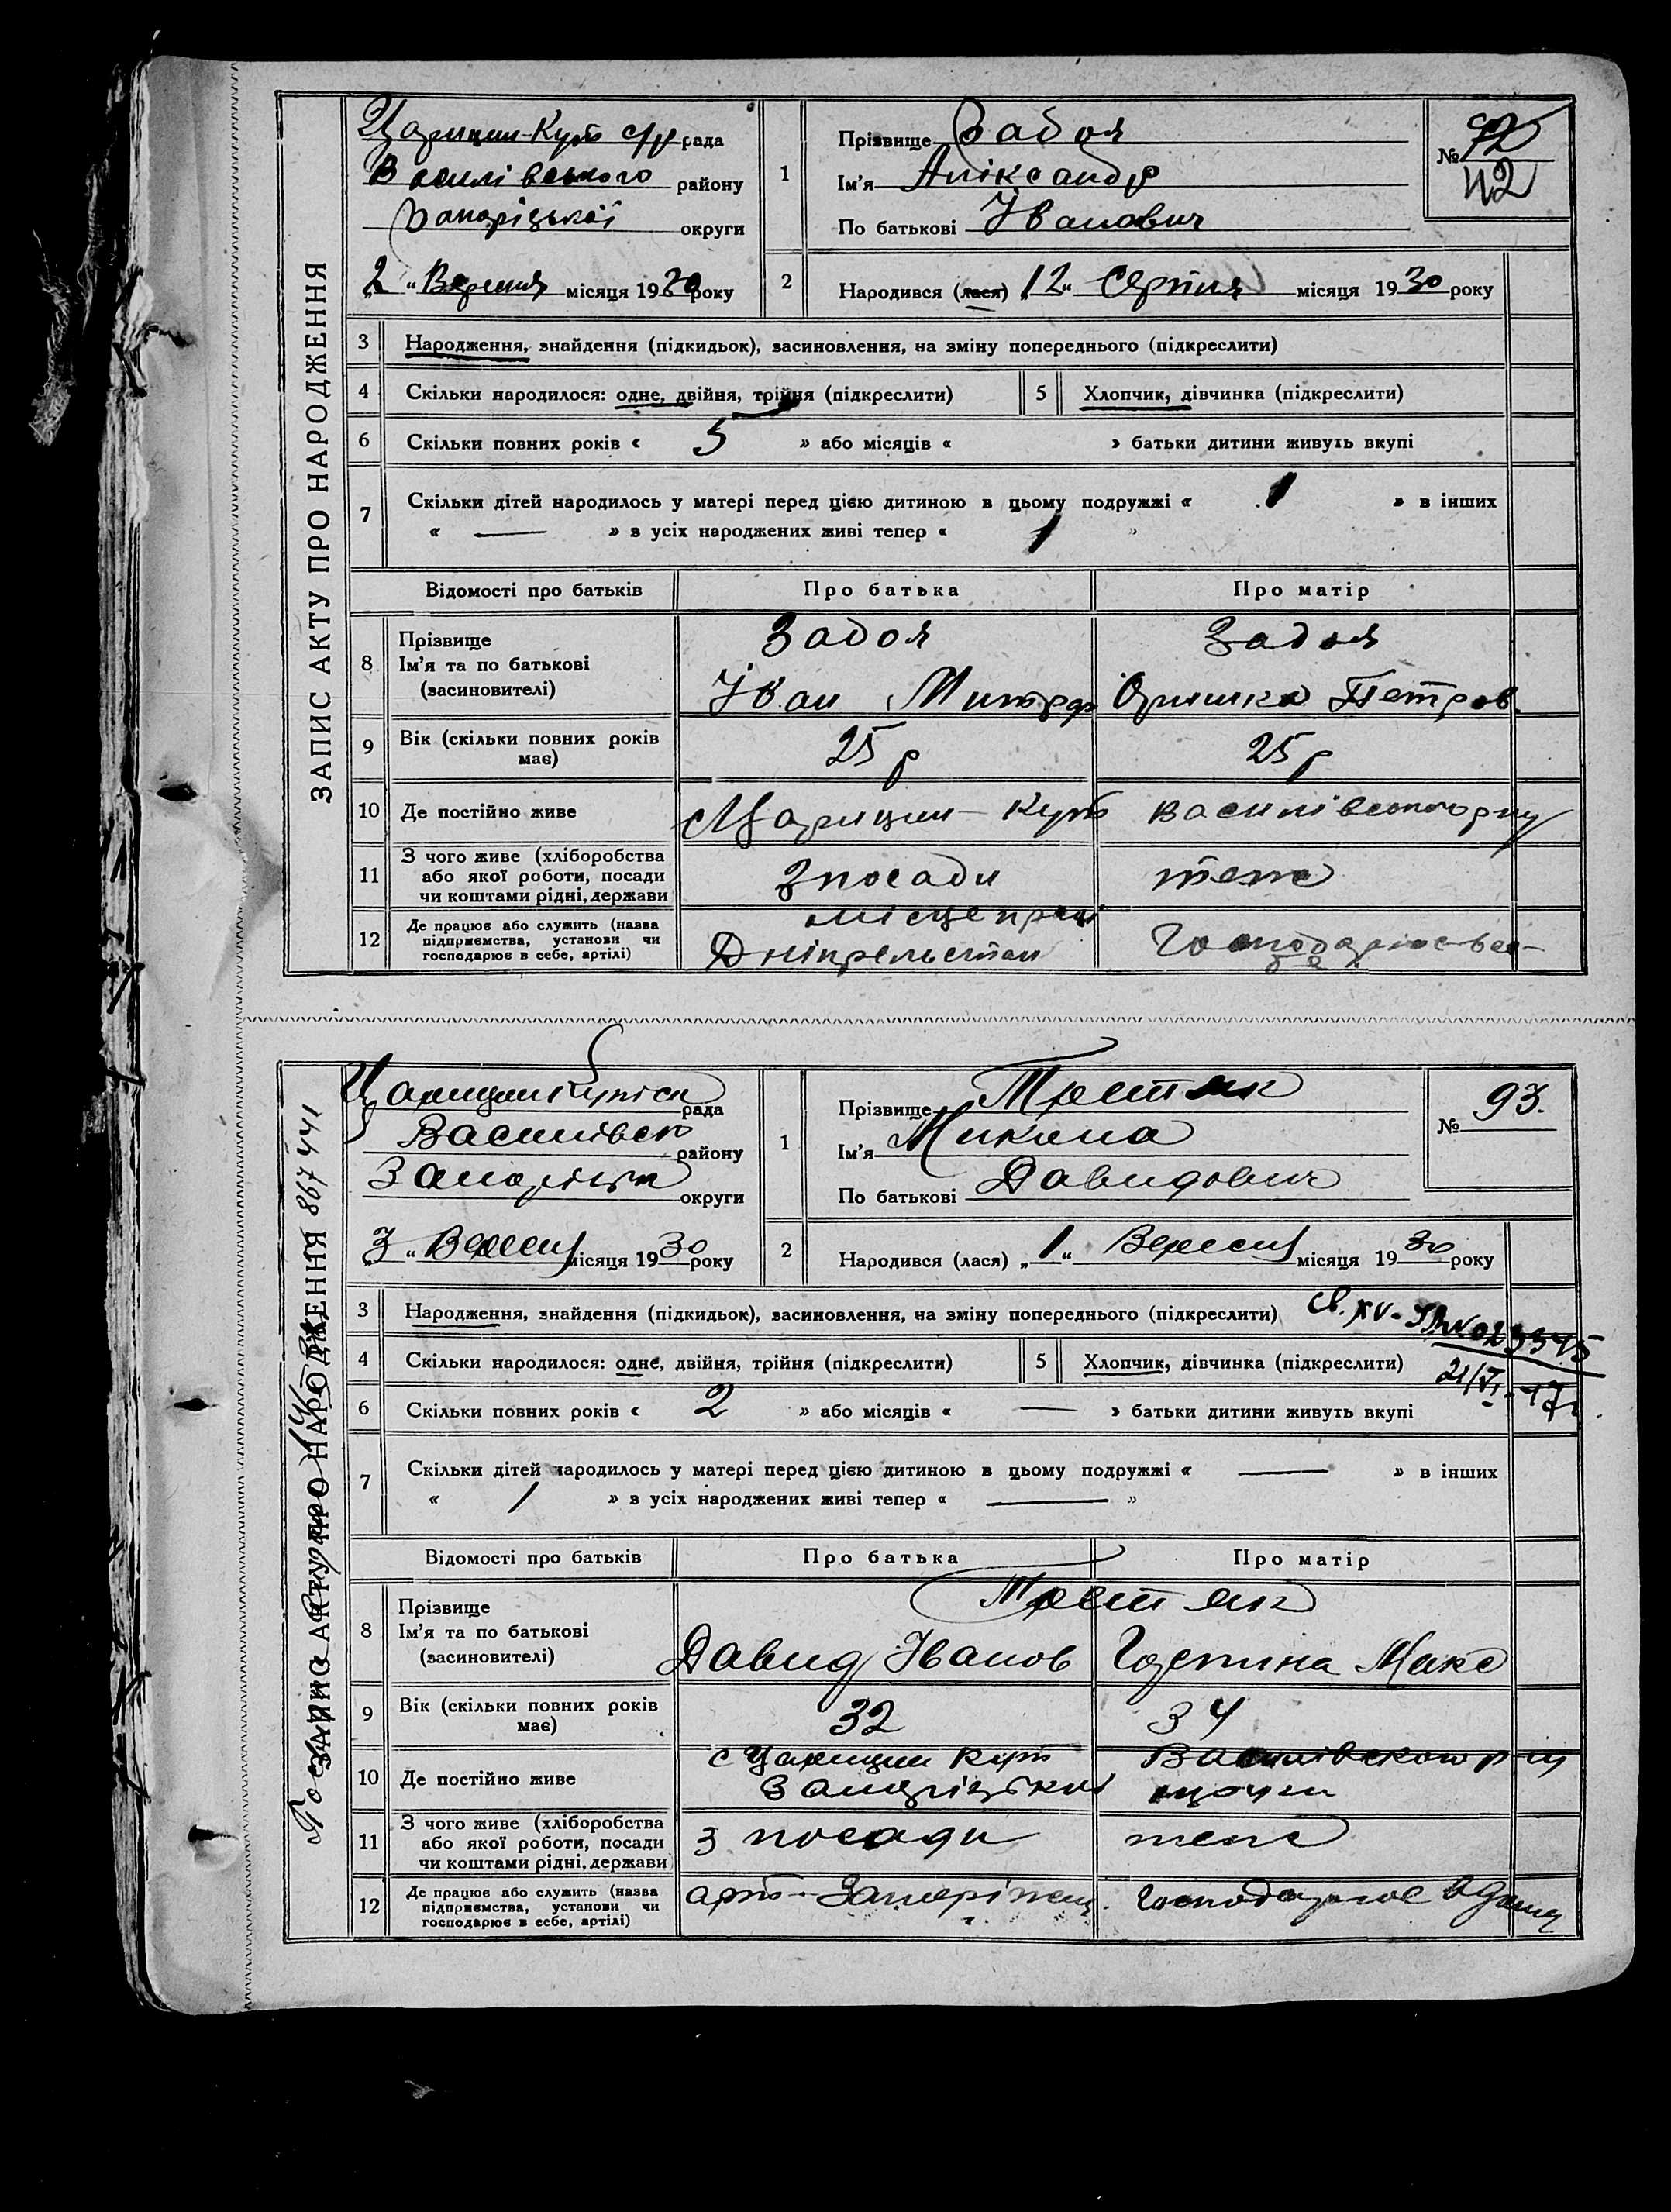 ЗАПИС АКТУ ПРО НАРОДЖЕННЯ
Царицин-Кут с/р рада
Василівського району
Запоріцької округи
„2“ Вересня місяця 1930 року
1
Прізвище Забоя
Ім'я Аліксандр
По батькові Іванович
№ 92
42
2
Народився (лася) „12“ Серпня місяця 1930 року
3 Народження, знайдення (підкидьок), засиновлення, на зміну попереднього (підкреслити)
4 Скільки народилося: одне, двійня, трійня (підкреслити) 5 Хлопчик, дівчинка (підкреслити)
6 Скільки повних років « 5 » або місяців « » батьки дитини живуть вкупі
7 Скільки дітей народилось у матері перед цією дитиною в цьому подружжі « 1 » в інших
« — » в усіх народжених живі тепер « 1 »
Відомості про батьків Про батька Про матір
8 Прізвище
Ім'я та по батькові
(засиновителі)
Забоя Забоя
Іван Митроф Оришка Петров.
9 Вік (скільки повних років має) 25 р 25 р
10 Де постійно живе Царицин-Кут Василівського р-ну
11 З чого живе (хліборобства
або якої роботи, посади
чи коштами рідні, держави
З посади теж
12 Де працює або служить (назва
підприємства, установи чи
господарює в себе, артілі)
місце праці
Дніпрельстан
ЗАПИС АКТУ ПРО НАРОДЖЕННЯ
867441
рада
Василівськ району
Запоріцьк округи
„3“ Вересня місяця 1930 року
1
Прізвище Третяк
Ім'я Микола
По батькові Давидович
№ 93.
2
Народився (лася) „1“ Вересня місяця 1930 року
3 Народження, знайдення (підкидьок), засиновлення, на зміну попереднього (підкреслити)
4 Скільки народилося: одне, двійня, трійня (підкреслити) 5 Хлопчик, дівчинка (підкреслити)
6 Скільки повних років « 2 » або місяців « — » батьки дитини живуть вкупі
7 Скільки дітей народилось у матері перед цією дитиною в цьому подружжі « — » в інших
« 1 » в усіх народжених живі тепер « — »
Відомості про батьків Про батька Про матір
8 Прізвище
Ім'я та по батькові
(засиновителі)
Третяк
Давид Іванов Макс
9 Вік (скільки повних років має) 32 34
10 Де постійно живе
с Царицин Кут Василівского р-ну
Запоріцької
11 З чого живе (хліборобства
або якої роботи, посади
чи коштами рідні, держави
з посади теж
12 Де працює або служить (назва
підприємства, установи чи
господарює в себе, артілі)
арт.